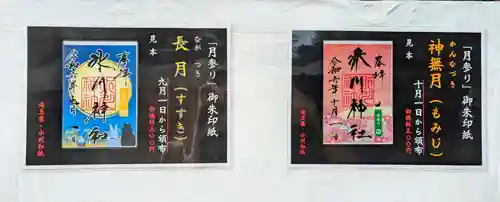 「月参り」御朱印紙
長月(すすき)
なが つき
九月一日から頒布
初穂料五〇〇円
見本
奉拝
氷川神社
埼玉県・小川和紙
「月参り」御朱印紙
神無月(もみじ)
かんなづき
十月一日から頒布
初穂料五〇〇円
見本
奉拝
氷川神社
令和六年十月
埼玉県・小川和紙